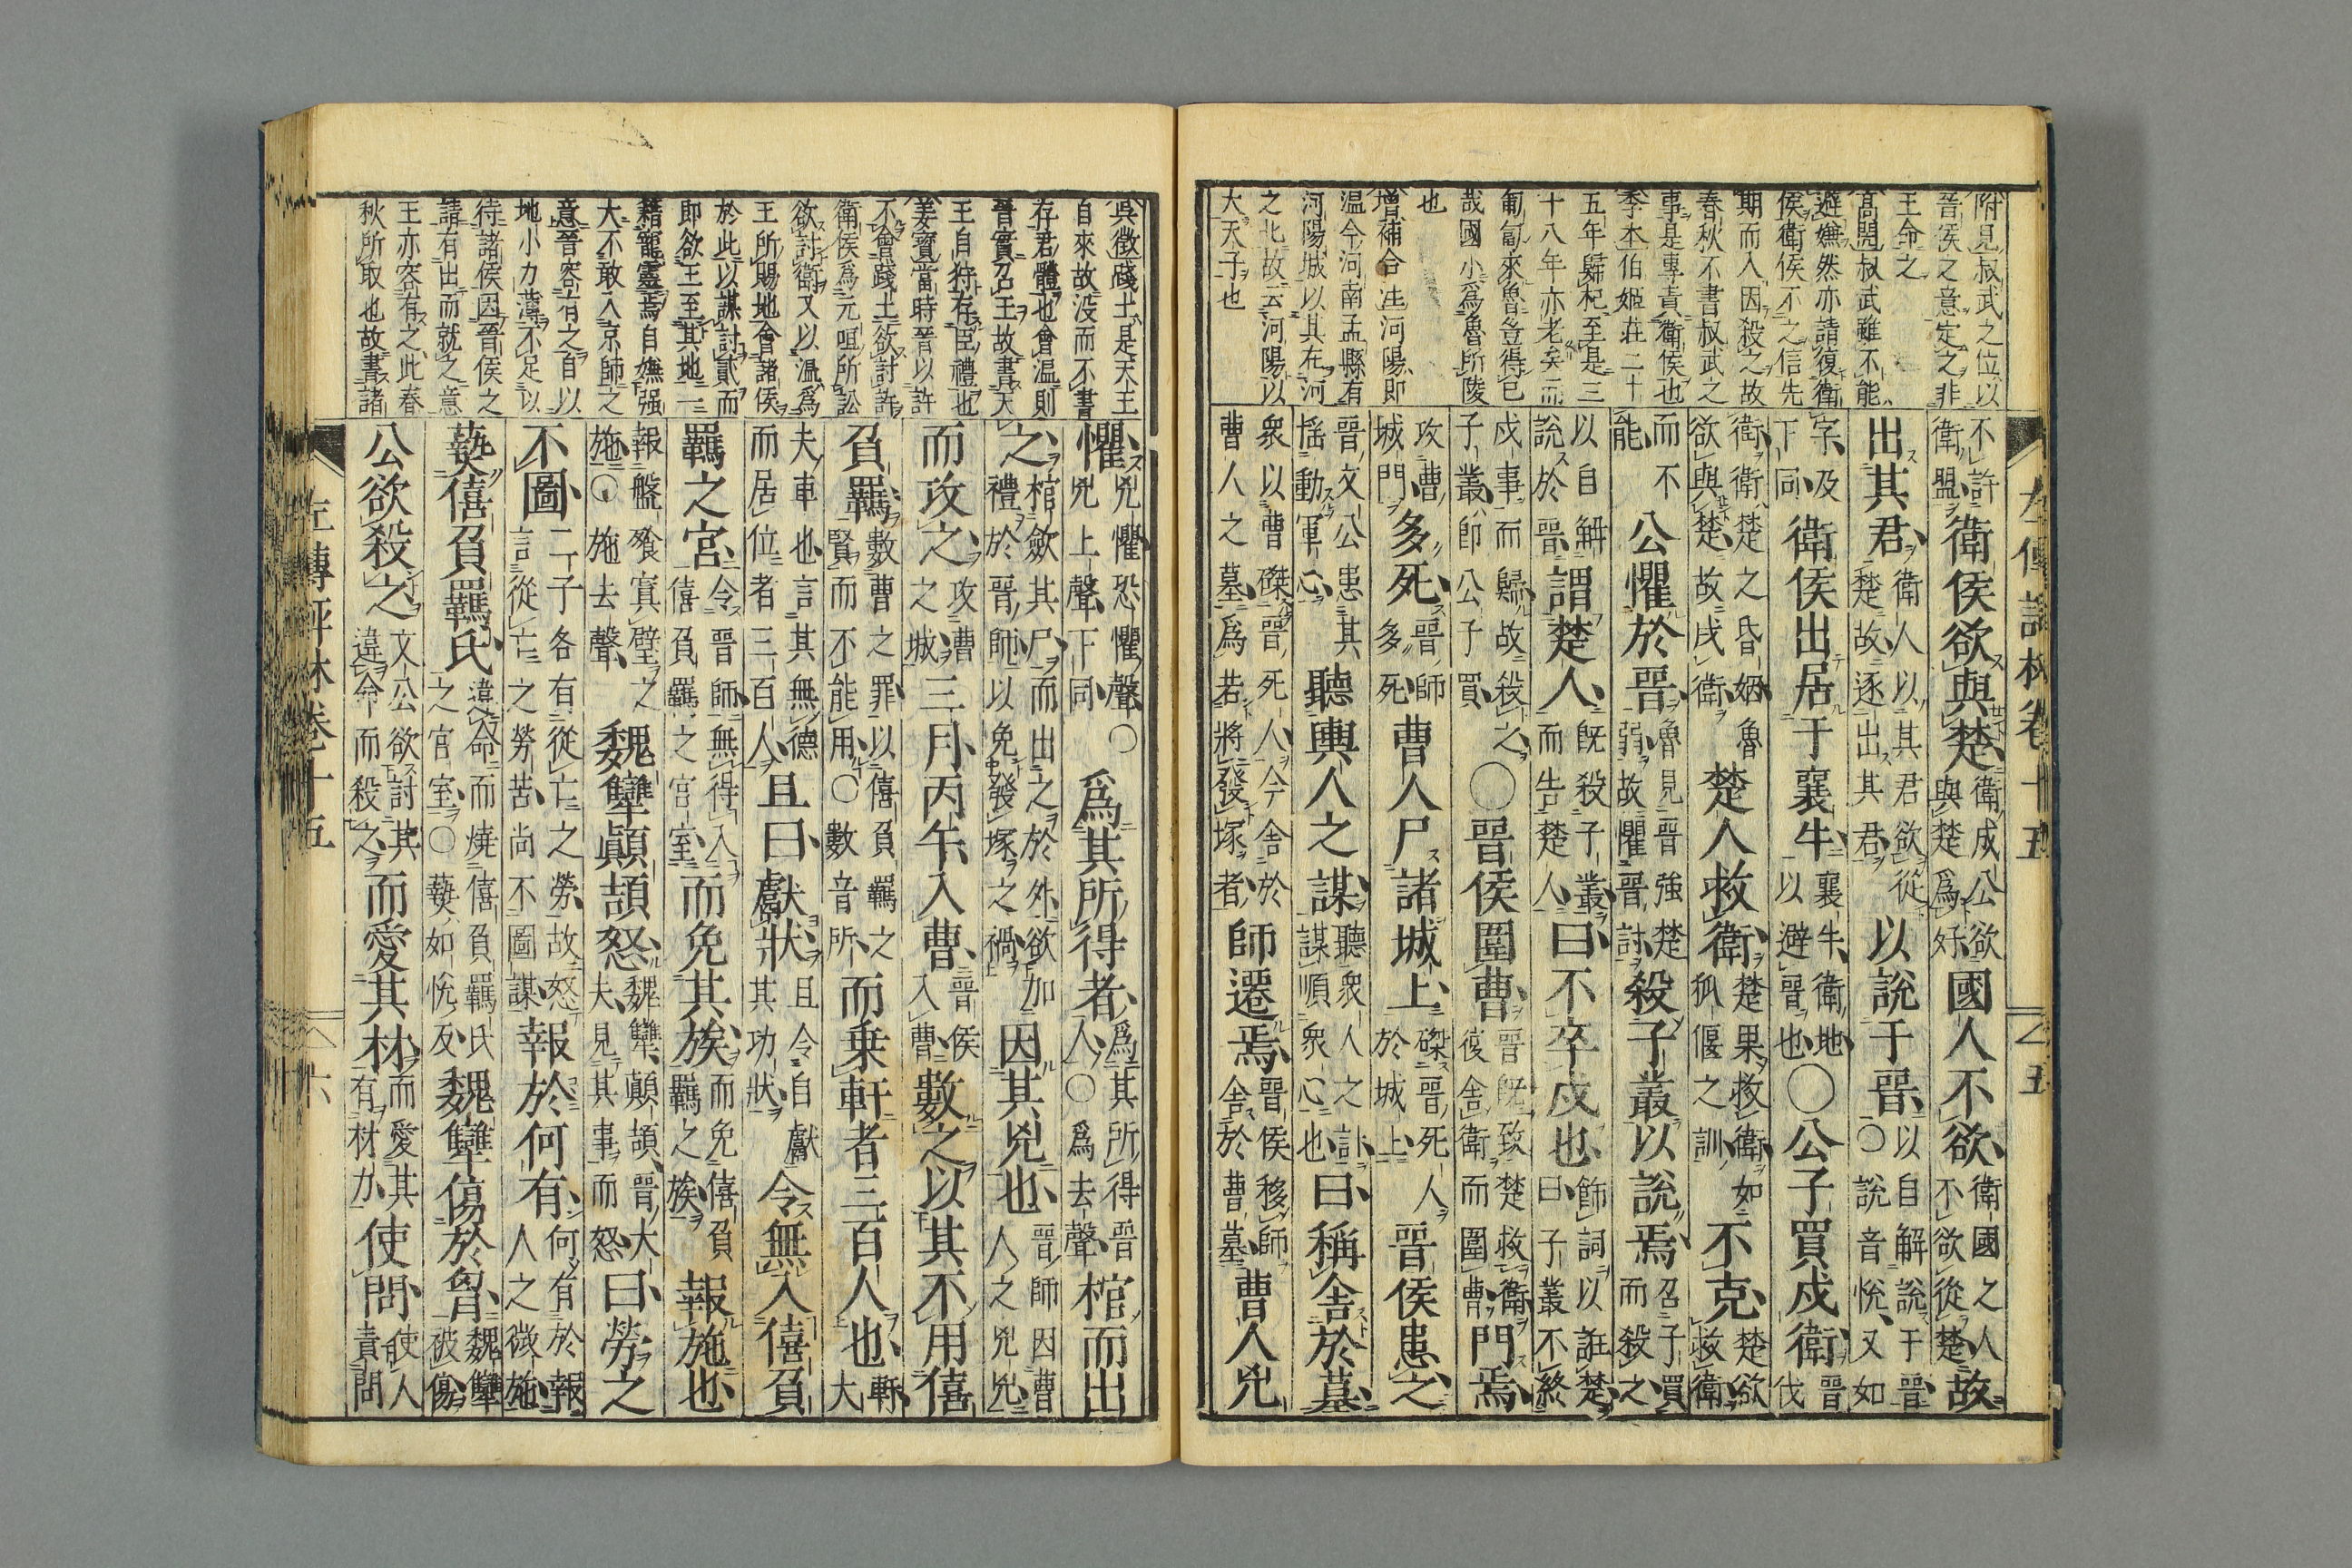 附見叔武之位以
晉侯之意定之非
王命之
髙閌叔武雖不能
避嫌然亦請復衛
侯衛侯不之信先
期而入因殺之故
春秋不書叔武之
事是專責衛侯也
季本伯姬莊二十
五年歸杞至是三
十八年亦老矣而
匍匐來魯豈得已
哉國小為魯所陵
也
增補合注河陽即
温今河南孟縣有
河陽城以其在河
之北故云河陽以
大天子也
不許衛盟衛侯欲與楚衛成公欲與楚為好國人不欲衛國之人不欲從楚故
出其君衛人以其君欲從楚故逐出其君以說于晉以自解說于晉○說音悅又如
字及下同衛侯出居于襄牛襄牛衛地以避晉也○公子買戍衛晉伐
衛衛楚之昏姻魯欲與楚故戍衛楚人救衛楚果救衛如狐偃之訓不克楚欲救衛
而不能公懼於晉魯見晉強楚弱故懼晉討殺子叢以說焉召子買而殺之
以自解說於晉謂楚人既殺子叢而告楚人曰不卒戍也飾詞以誑楚曰子叢不終
戍事而歸故殺之子叢即公子買○晉侯圍曹晉既致楚救衛復舍衛而圍曹門焉
攻曹城門多死晉師多死曹人尸諸城上磔晉死人於城上晉侯患之
晉文公患其搖動軍心聽輿人之謀聽衆人之訃謀順衆心也曰稱舍於墓
衆以曹磔晉死人今舍於曹人之墓為若將發塚者師遷焉晉侯移師舍於曹墓曹人兇
左傳評林卷十五
五
吳徵踐土是天王
自來故没而不書
存君體也會温則
晉實召王故書天
王自狩存臣禮也
姜寶當時晉以許
不會踐土欲討許
衛侯為元咺所訟
欲討衛又以温為
王所賜地會諸侯
於此以謀討貳而
即欲王至其地一
藉寵靈焉自嫌强
大不敢入京師之
意晉容有之自以
地小力薄不足以
待諸侯因晉侯之
請有出而就之意
王亦容有之此春
秋所取也故書諸
懼兇懼恐懼聲○兇上聲下同為其所得者為其所得晉人○為去聲棺而出
之棺歛其尸而出之於外欲加禮於晉師以免發塚之禍因其兇也晉師因曹人之兇兇
而攻之攻曹之城三月丙午入曹晉侯入曹數之以其不用僖
負羈數曹之罪以僖負羈之賢而不能用○數音所而乗軒者三百人也軒大
夫車也言其無德而居位者三百人且曰獻狀且令自獻其功狀令無入僖負
羈之宮令晉師無得入僖負羈之宮室而免其族而免僖負羈之族報施也
報盤飧寘璧之施○施去聲魏犨顛頡怒魏犨顛頡晉大夫見其事而怒曰勞之
不圖二子各有從亡之勞故怒言從亡之勞苦尚不圖謀報於何有何有於報人之微施
爇僖負羈氏違命而燒僖負羈氏之宮室○爇如悅反魏犨傷於胷魏犨破傷
公欲殺之文公欲討其違命而殺之而愛其材而愛其有材力使問使人責問
左傳評林卷十五
六